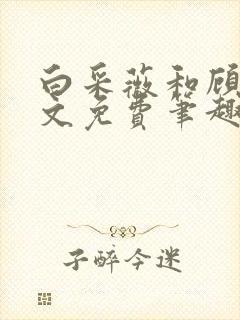 白采薇和顾
文免费笔趣
子醉今迷